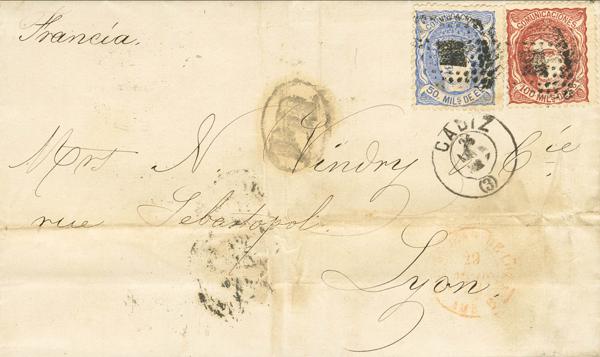 Francía.
COMUNICACIONES
50 MILS DE E
COMUNICACIONES
100 MILS DE
CADIZ
(3)
Mrs N. Vindry & Cie
rue Sebastopol.
Lyon.